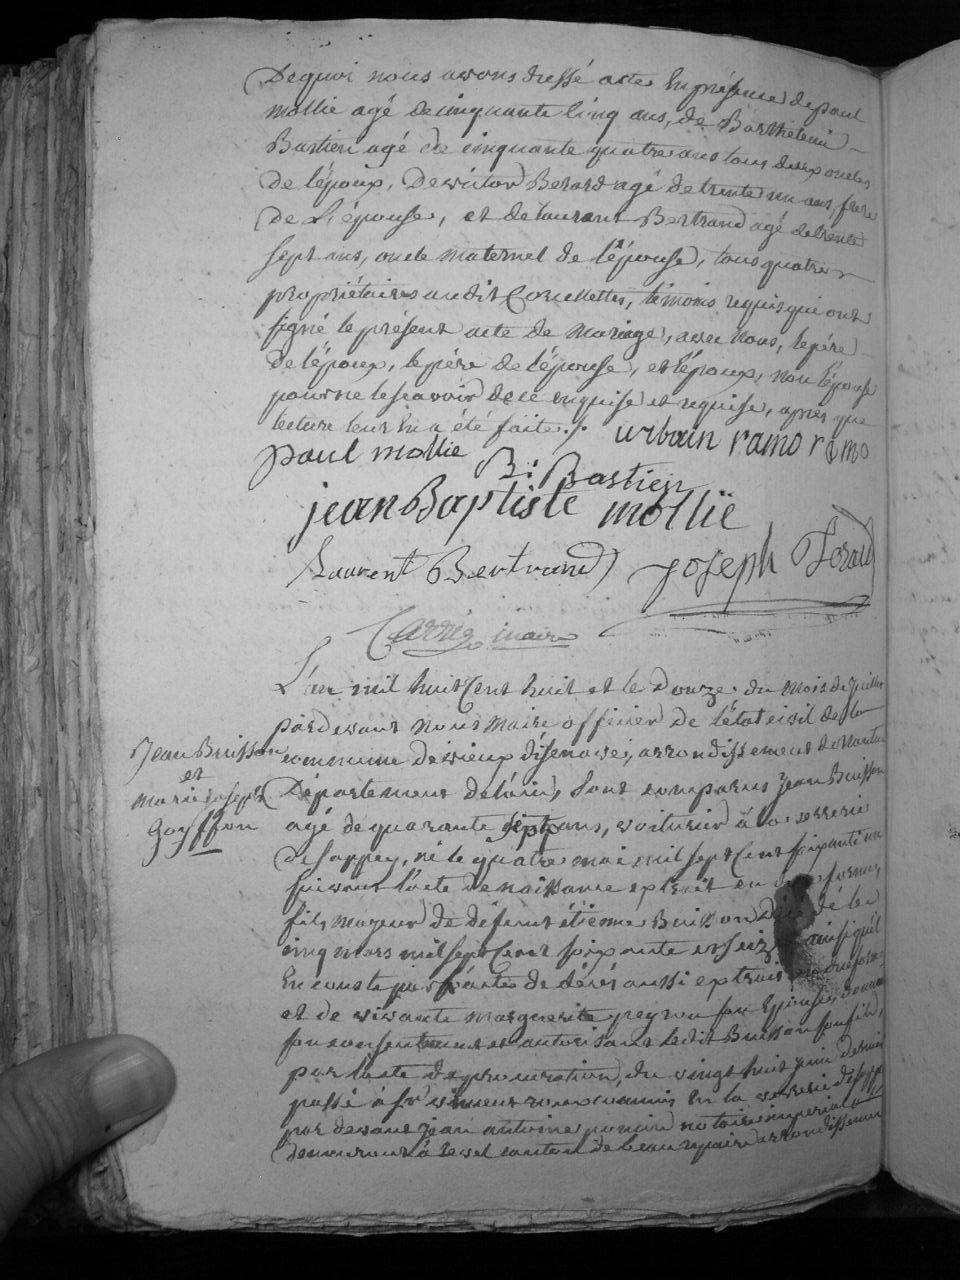 De quoi nous avons dressé acte En présence de paul
mollie agé de cinquante Cinq ans, de Barthelemi
Bastien agé de cinquante quatre ans tous deux oncles
de l'époux, De victor Berard agé de trente un ans, frere
de L'épouse, et de laurent Bertrand agé de trente
sept ans, oncle maternel de l'épouse, tous quatre
propriétaires audit témoins requis qui ont
signé le présent acte de Mariage, avec Nous, le pére
de l'époux, le pére de l'épouse, et l'époux, non l'épouse
pour ne le scavoir de ce enquise et requise, après que
lecture leur En a été faite./. urbain ramo ramo
paul mollie
B: Bastien
jean Baptiste mollië
Laurent Bertrand joseph
maire
L'an mil huit Cent huit et le Douze du Mois de juillet
pardevant Nous Maire officier de l'état civil de la
commune de vieux arrondissement de Nantua
Jean Buisson
et
marie joseph
Goyffon
Département de l'ain, Sont comparus Jean Buisson
agé de quarante sept ans, voiturier à la verrerie
de né le quatre mai mil sept Cent soixante un
suivant l'acte de naissance extrait en forme,
fils majeur de défunt étienne Buisson
cinq mars mil sept Cent soixante et seize ainsi qu'il
En conste par l'acte de décés aussi extrait
et de vivante Marguerite peyron son Epouse, donnant
son consentement et autorisant ledit Buisson son fils,
par l'acte de procuration, du vingt huit juin dernier
passé à En la verrerie
par devant jean antoine notaire imperial
demeurant à canton de beaurepaire arrondissement